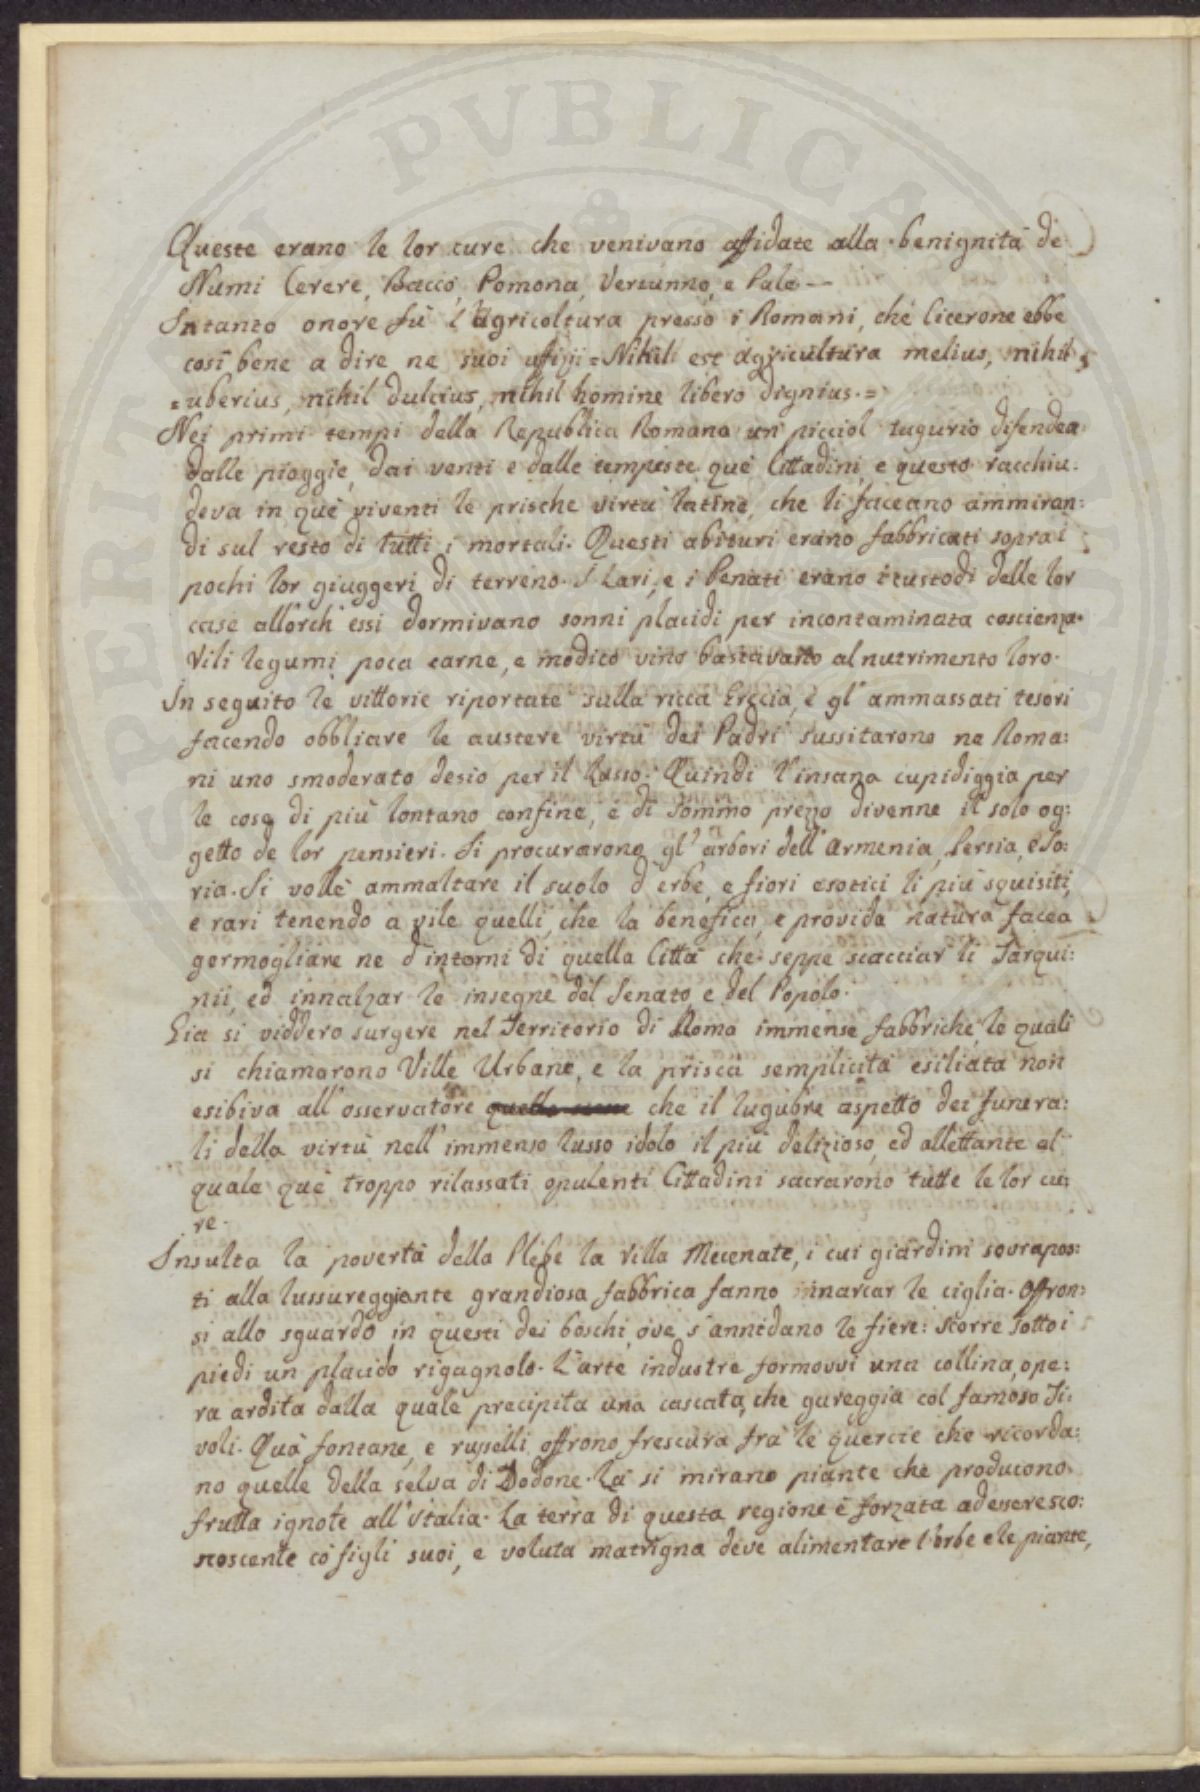 Queste erano le lor cure che venivano affidate alla benignità de
Numi Cerere, Bacco, Pomona, Vertunno, e Pale —
In tanto onore fù l'agricoltura presso i Romani, che Cicerone ebbe
così bene a dire ne suoi uffizj = Nihil est agricultura melius, nihil
= uberius, nihil dulcius, nihil homine libero dignius. =
Nei primi tempi della Republica Romana un picciol tugurio difendea
dalle pioggie, dai venti e dalle tempeste que Cittadini, e questo racchiu:
deva in que viventi le prische virtù latine, che li faceano ammiran:
di sul resto di tutti i mortali. Questi abituri erano fabbricati sopra i
pochi lor giuggeri di terreno. I Lari, e i Penati erano i custodi delle lor
case allorch'essi dormivano sonni placidi per incontaminata coscienza.
Vili legumi, poca carne, e modico vino bastavano al nutrimento loro.
In seguito le vittorie riportate sulla ricca Grecia, e gl'ammassati tesori
facendo obbliare le austere virtù dei Padri sussitarono ne Roma:
ni uno smoderato desio per il Lusso. Quindi l'insana cupidiggia per
le cose di più lontano confine, e di sommo prezzo divenne il solo og:
getto de lor pensieri. Si procurarono gl'arbori dell'Armenia, Persia, e So:
ria. Si volle ammaltare il suolo d'erbe, e fiori esotici li più squisiti,
e rari tenendo a vile quelli, che la benefica, e provida natura facea
germogliare ne d'intorni di quella Città che seppe scacciar li Tarqui:
nii, ed innalzar le insegne del Senato, e del Popolo.
Già si viddero surgere nel Territorio di Roma immense fabbriche, le quali
si chiamarono Ville Urbane, e la prisca semplicità esiliata non
esibiva all'osservatore che il lugubre aspetto dei funera:
li della virtù nell'immenso lusso idolo il più delizioso, ed allettante al
quale que troppo rilassati opulenti Cittadini sacrarono tutte le lor cu:
re.
Insulta la povertà della Plebe la Villa Mecenate, i cui giardini sovrapos:
ti alla lussureggiante grandiosa fabbrica fanno innarcar le ciglia. Offron:
si allo sguardo in questi dei boschi, ove s'annidano le fiere: Scorre sotto i
piedi un placido rigagnolo. L'arte industre formovvi una collina, ope:
ra ardita dalla quale precipita una cascata, che gareggia col famoso Ti:
voli. Quà fontane, e ruscelli offrono frescura frà le quercie che ricorda:
no quelle della selva di Dodone. Là si mirano piante che producono
frutta ignote all'Italia. La terra di questa regione è forzata ad essere sco:
noscente co figli suoi, e voluta matrigna deve alimentare l'erbe e le piante,